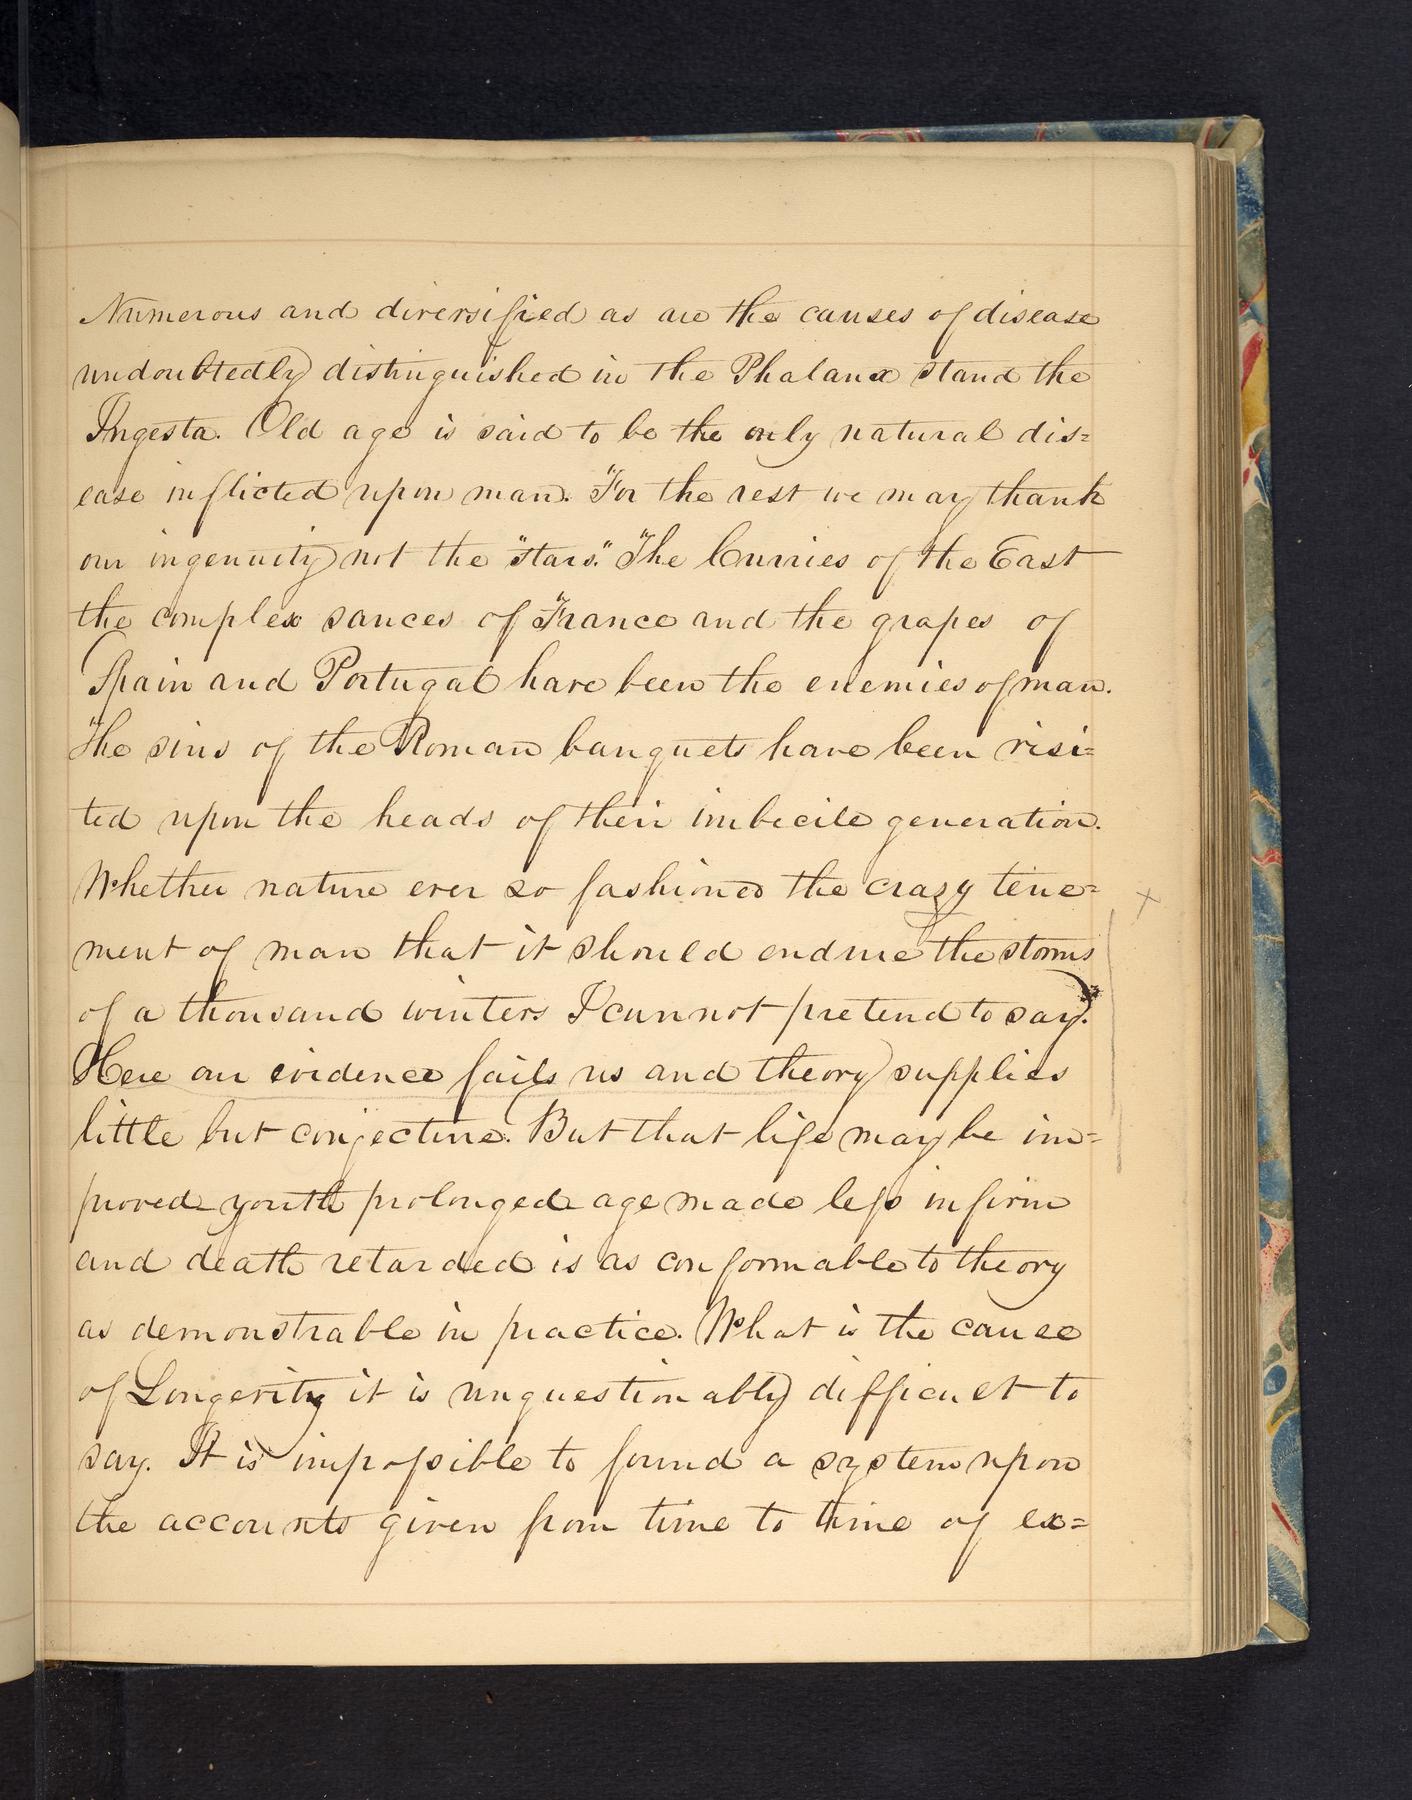 Numerous and diversified as are the causes of disease
undoubtedly distinguished in the Phalanx stand the
Ingesta. Old age is said to be the only natural dis=
ease inflicted upon man. For the rest we may thank
our ingenuity not the "stars." The Curries of the East
the complex sauces of France and the grapes of
Spain and Portugal have been the enemies of man.
The sins of the Roman banquets have been visi=
ted upon the heads of their imbecile generation.
Whether nature ever so fashioned the crazy tene=
ment of man that it should endure the storms
of a thousand winters I cannot pretend to say.
Here our evidence fails us and theory supplies
little but conjecture. But that life may be im=
proved youth prolonged age made less infirm
and death retarded is as conformable to theory
as demonstrable in practice. What is the cause
of Longevity it is unquestionably difficult to
say. It is impossible to found a system upon
the accounts given from time to time of ex=